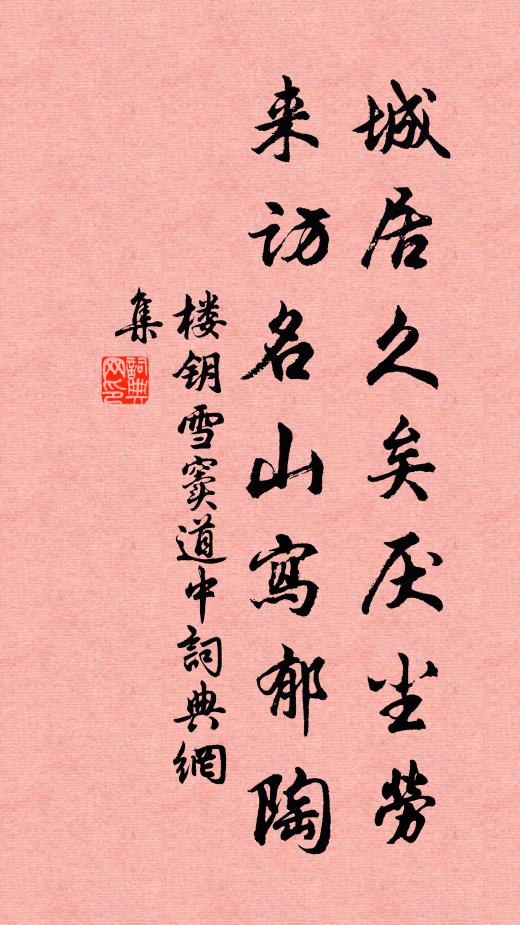 城居久矣厌尘劳
来访名山寫郁陶
楼钥雪窦道中詞典網
集
詞典
网印